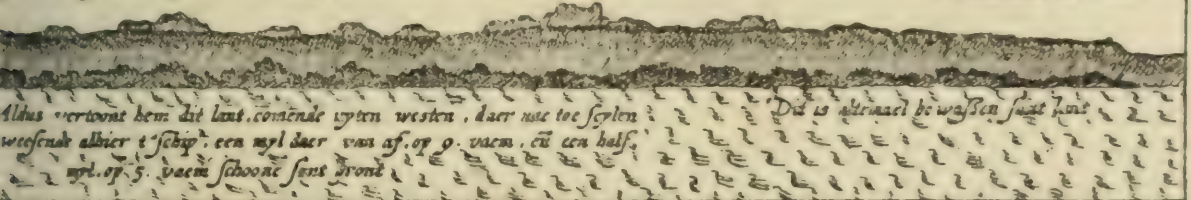 Aldus vertoont hem dit lant, comende uyten westen, daer nae toe seylen
weesende alhier t'schip, een myl daer van af, op 9. vaem, en̄ een half,
myl, op 5. vaem schoone sant gront
Dit is altemael bewassen sant lant